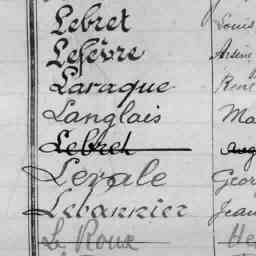 Lebret Louis
Lefèvre Arsène
Laraque René
Langlais Ma
Lebret Aug
Levale Geor
Lebarrier Jean
Le Roux He